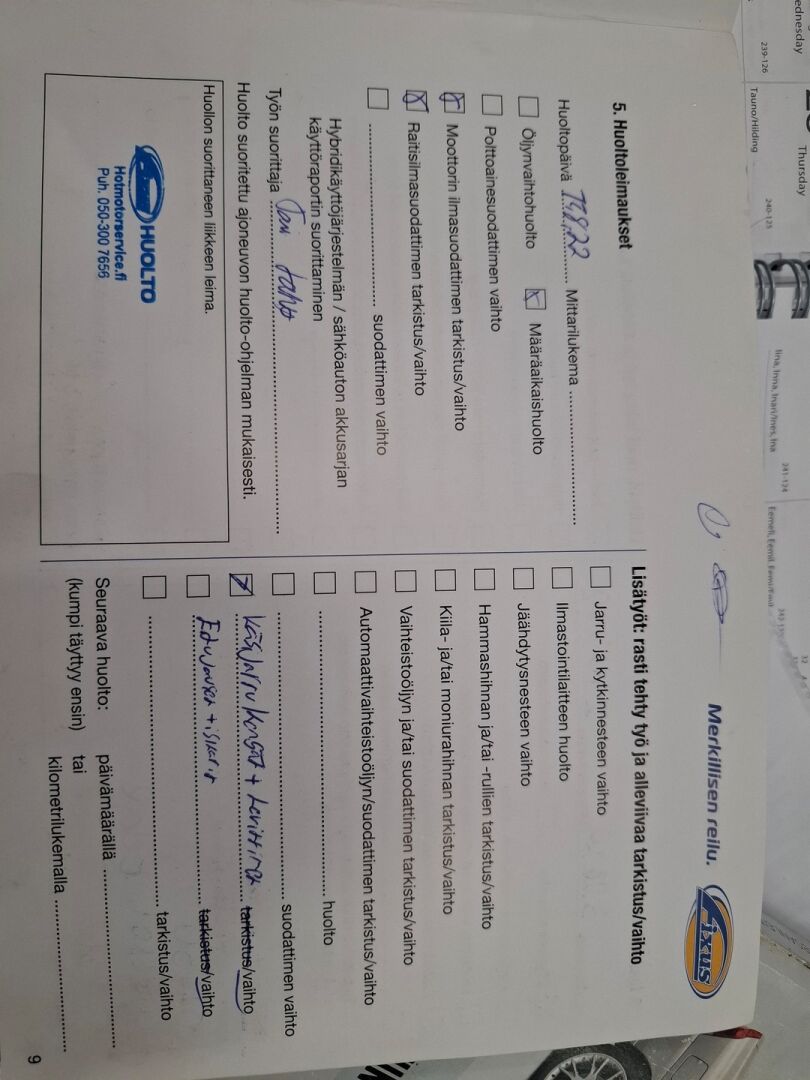 Merkillisen reilu.
Fixus
5. Huoltoleimaukset
Huoltopäivä 15.8.22 Mittarilukema
Öljynvaihtohuolto Määräaikaishuolto
Polttoainesuodattimen vaihto
Moottorin ilmasuodattimen tarkistus/vaihto
Raitisilmasuodattimen tarkistus/vaihto
suodattimen vaihto
Hybridikäyttöjärjestelmän / sähköauton akkusarjan
käyttöraportin suorittaminen
Työn suorittaja
Huolto suoritettu ajoneuvon huolto-ohjelman mukaisesti.
Huollon suorittaneen liikkeen leima.
Fixus HUOLTO
Hotmotorservice.fi
Puh. 050-300 7656
Lisätyöt: rasti tehty työ ja alleviivaa tarkistus/vaihto
Jarru- ja kytkinnesteen vaihto
Ilmastointilaitteen huolto
Jäähdytysnesteen vaihto
Hammashihnan ja/tai -rullien tarkistus/vaihto
Kiila- ja/tai moniurahihnan tarkistus/vaihto
Vaihteistoöljyn ja/tai suodattimen tarkistus/vaihto
Automaattivaihteistoöljyn/suodattimen tarkistus/vaihto
huolto
suodattimen vaihto
Käsijarru kengät + levittimet tarkistus/vaihto
tarkistus/vaihto
tarkistus/vaihto
Seuraava huolto: päivämäärällä
(kumpi täyttyy ensin) tai
kilometrilukemalla
9
ednesday
Thursday
239-126
Tauno/Hilding
240-125
Iina, Inna, Inari/Ines, Ina
241-124
Eemeli, Eemil